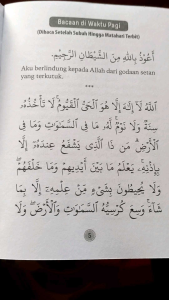 Bacaan di Waktu Pagi
(Dibaca Setelah Subuh Hingga Matahari Terbit)
أَعُوْذُ بِاللهِ مِنَ الشَّيْطَانِ الرَّجِيْمِ.
Aku berlindung kepada Allah dari godaan setan
yang terkutuk.
اَللّٰهُ لَآ اِلٰهَ اِلَّا هُوَ الْحَيُّ الْقَيُّوْمُ ۚ لَا تَأْخُذُهٗ
سِنَةٌ وَّلَا نَوْمٌ ۗ لَهٗ مَا فِى السَّمٰوٰتِ وَمَا فِى
الْاَرْضِ ۗ مَنْ ذَا الَّذِيْ يَشْفَعُ عِنْدَهٗٓ اِلَّا
بِاِذْنِهٖ ۗ يَعْلَمُ مَا بَيْنَ اَيْدِيْهِمْ وَمَا خَلْفَهُمْ ۚ
وَلَا يُحِيْطُوْنَ بِشَيْءٍ مِّنْ عِلْمِهٖٓ اِلَّا بِمَا
شَاۤءَ ۚ وَسِعَ كُرْسِيُّهُ السَّمٰوٰتِ وَالْاَرْضَ ۚ وَلَا
5